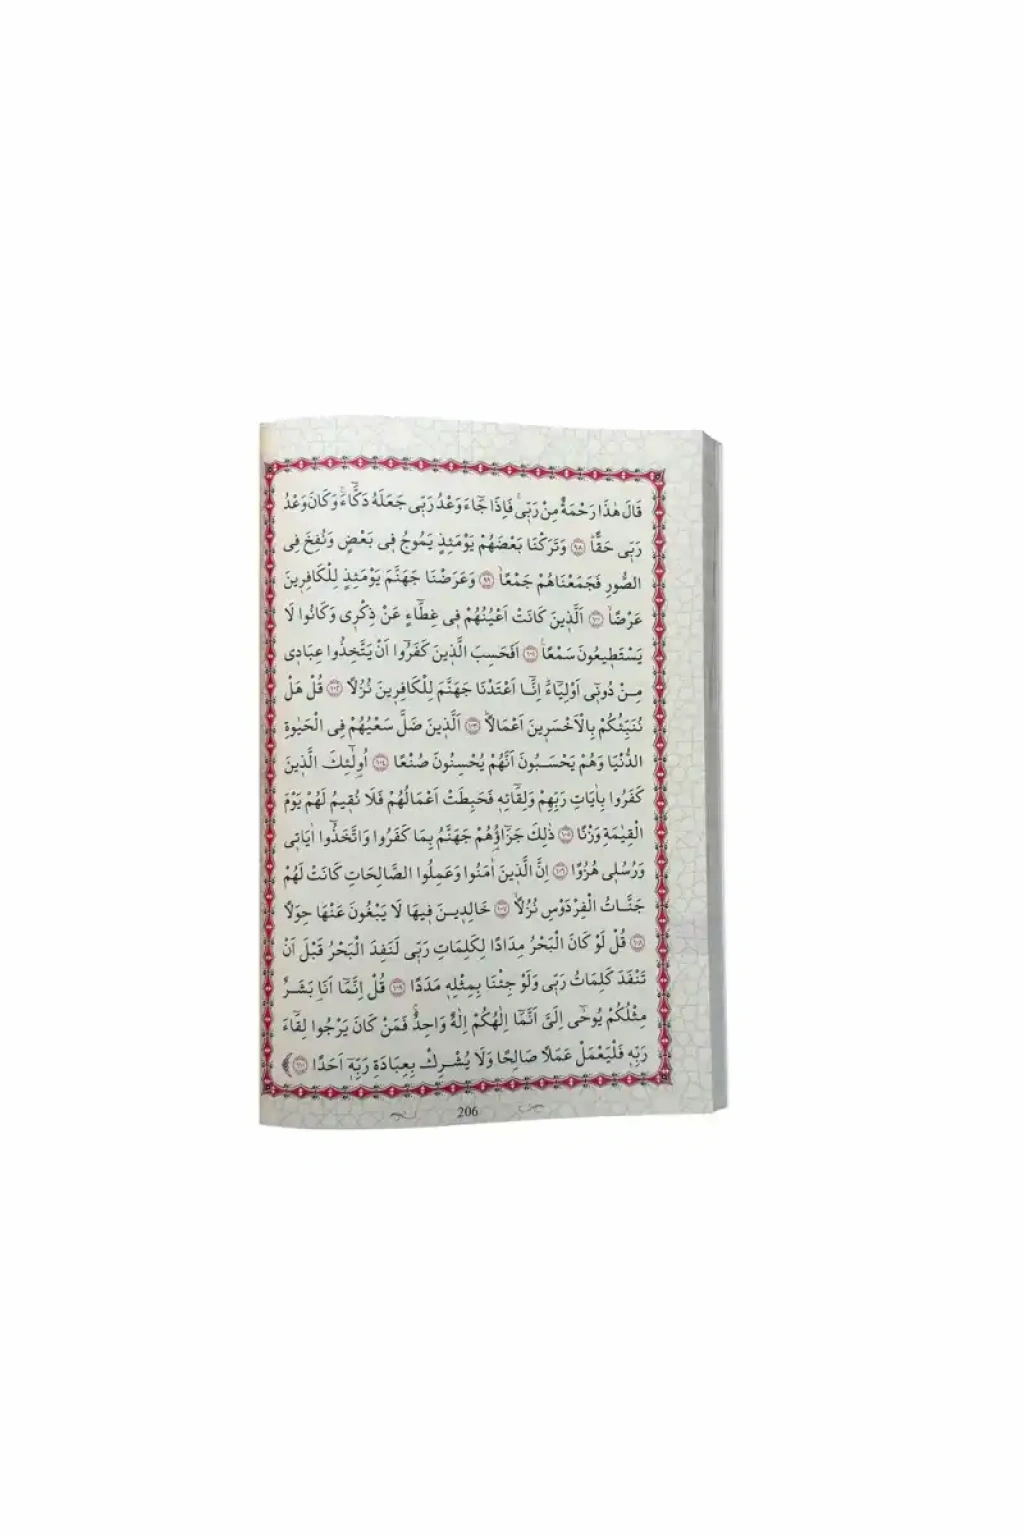 قَالَ هٰذَا رَحْمَةٌ مِنْ رَبّ۪يۚ فَاِذَا جَٓاءَ وَعْدُ رَبّ۪ي جَعَلَهُ دَكَّٓاءَۚ وَكَانَ وَعْدُ
رَبّ۪ي حَقًّاۜ ﴿٩٨﴾ وَتَرَكْنَا بَعْضَهُمْ يَوْمَئِذٍ يَمُوجُ ف۪ي بَعْضٍ وَنُفِخَ فِي
الصُّورِ فَجَمَعْنَاهُمْ جَمْعًاۙ ﴿٩٩﴾ وَعَرَضْنَا جَهَنَّمَ يَوْمَئِذٍ لِلْكَافِر۪ينَ
عَرْضًاۙ ﴿١٠٠﴾ اَلَّذ۪ينَ كَانَتْ اَعْيُنُهُمْ ف۪ي غِطَٓاءٍ عَنْ ذِكْر۪ي وَكَانُوا لَا
يَسْتَط۪يعُونَ سَمْعًاۙ ﴿١٠١﴾ اَفَحَسِبَ الَّذ۪ينَ كَفَرُٓوا اَنْ يَتَّخِذُوا عِبَاد۪ي
مِنْ دُون۪ٓي اَوْلِيَٓاءَۜ اِنَّٓا اَعْتَدْنَا جَهَنَّمَ لِلْكَافِر۪ينَ نُزُلًا ﴿١٠٢﴾ قُلْ هَلْ
نُنَبِّئُكُمْ بِالْاَخْسَر۪ينَ اَعْمَالًاۜ ﴿١٠٣﴾ اَلَّذ۪ينَ ضَلَّ سَعْيُهُمْ فِي الْحَيٰوةِ
الدُّنْيَا وَهُمْ يَحْسَبُونَ اَنَّهُمْ يُحْسِنُونَ صُنْعًا ﴿١٠٤﴾ اُو۬لٰٓئِكَ الَّذ۪ينَ
كَفَرُوا بِاٰيَاتِ رَبِّهِمْ وَلِقَٓائِه۪ فَحَبِطَتْ اَعْمَالُهُمْ فَلَا نُق۪يمُ لَهُمْ يَوْمَ
الْقِيٰمَةِ وَزْنًا ﴿١٠٥﴾ ذٰلِكَ جَزَٓاؤُ۬هُمْ جَهَنَّمُ بِمَا كَفَرُوا وَاتَّخَذُٓوا اٰيَات۪ي
وَرُسُل۪ي هُزُوًا ﴿١٠٦﴾ اِنَّ الَّذ۪ينَ اٰمَنُوا وَعَمِلُوا الصَّالِحَاتِ كَانَتْ لَهُمْ
جَنَّاتُ الْفِرْدَوْسِ نُزُلًاۙ ﴿١٠٧﴾ خَالِد۪ينَ ف۪يهَا لَا يَبْغُونَ عَنْهَا حِوَلًا
﴿١٠٨﴾ قُلْ لَوْ كَانَ الْبَحْرُ مِدَادًا لِكَلِمَاتِ رَبّ۪ي لَنَفِدَ الْبَحْرُ قَبْلَ اَنْ
تَنْفَدَ كَلِمَاتُ رَبّ۪ي وَلَوْ جِئْنَا بِمِثْلِه۪ مَدَدًا ﴿١٠٩﴾ قُلْ اِنَّمَٓا اَنَا۬ بَشَرٌ
مِثْلُكُمْ يُوحٰٓى اِلَيَّ اَنَّمَٓا اِلٰهُكُمْ اِلٰهٌ وَاحِدٌۚ فَمَنْ كَانَ يَرْجُوا لِقَٓاءَ
رَبِّه۪ فَلْيَعْمَلْ عَمَلًا صَالِحًا وَلَا يُشْرِكْ بِعِبَادَةِ رَبِّه۪ٓ اَحَدًا ﴿١١٠﴾
206